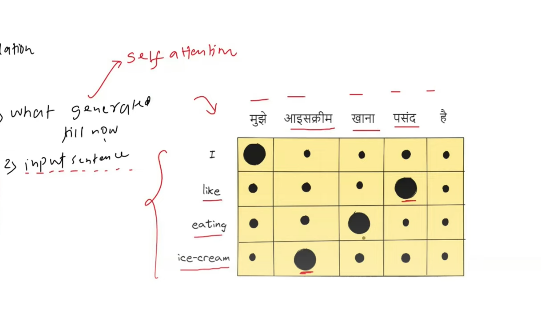 lation
self attention
what generated
till now
2) input sentence
मुझे आइसक्रीम खाना पसंद है
I
like
eating
ice-cream